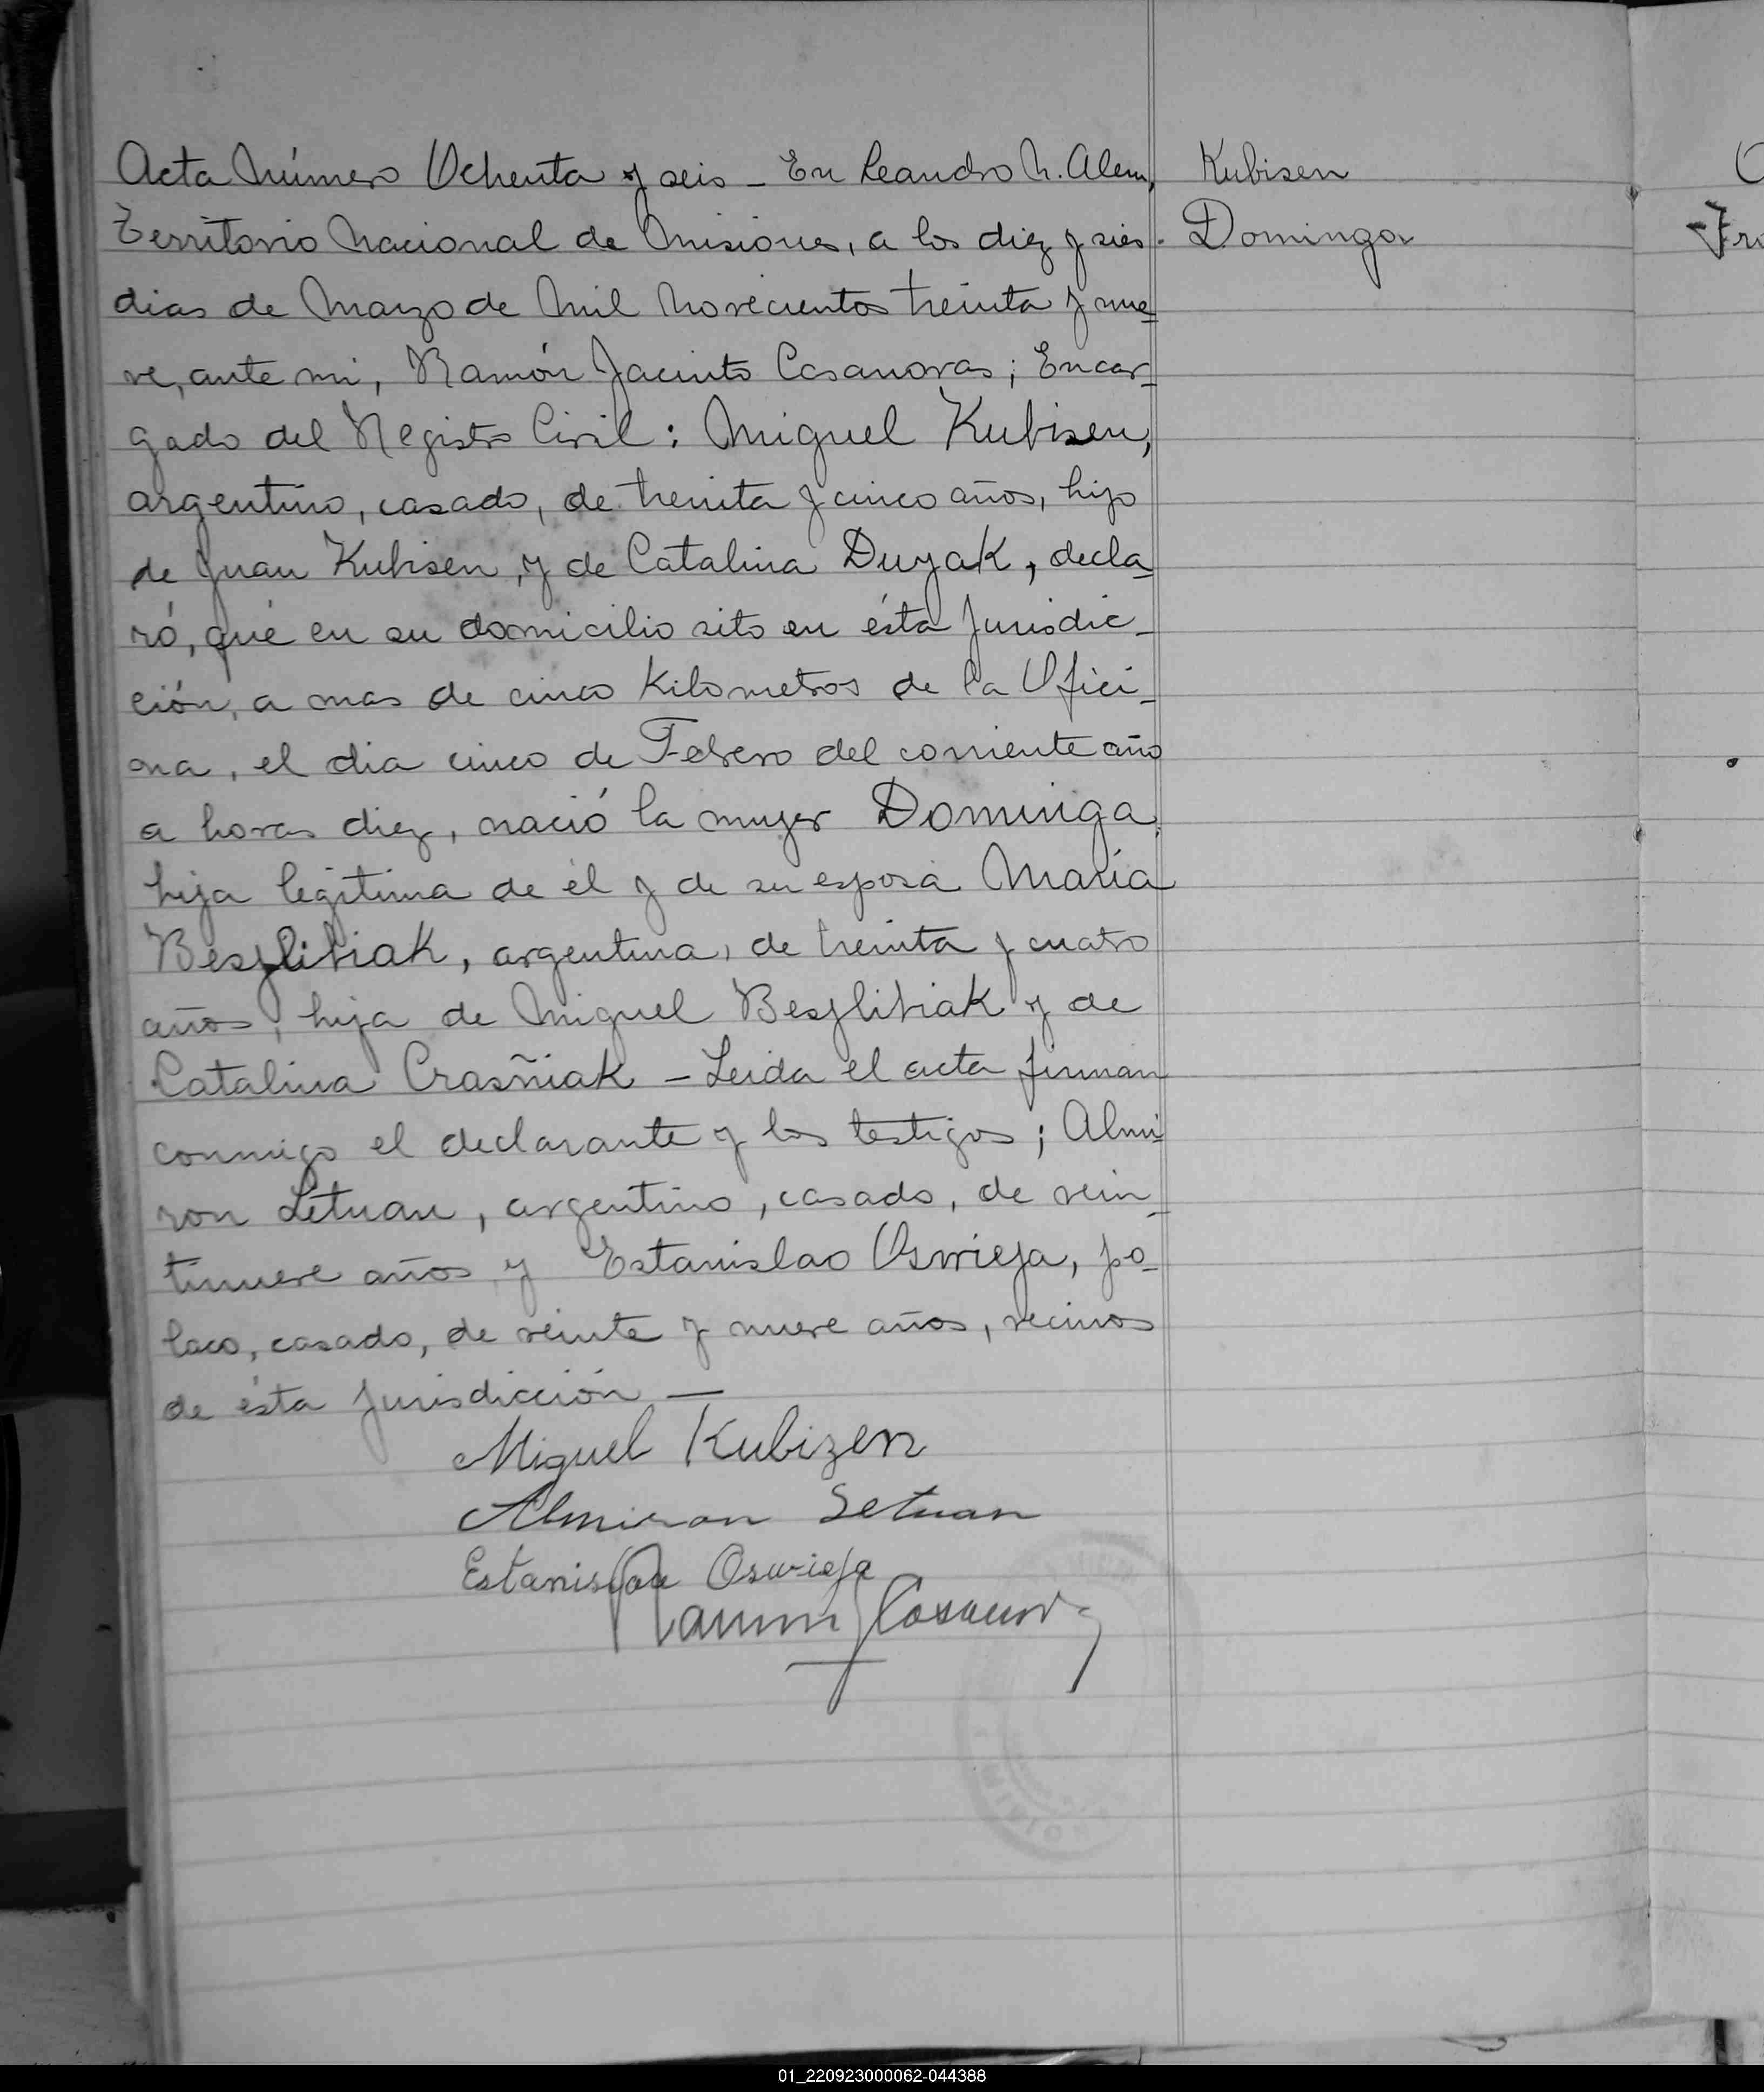 Acta Número Ochenta y seis - En Leandro N. Alem, Kubisen
Territorio Nacional de Misiones, a los diez y seis Dominga
dias de Marzo de Mil Novecientos treinta y nue-
ve, ante mi, Ramón Jacinto Casanovas; Encar-
gado del Registro Civil: Miguel Kubisen,
argentino, casado, de treinta y cinco años, hijo
de Juan Kubisen, y de Catalina Duzak, decla-
ró, que en su domicilio sito en ésta Jurisdic-
ción, a mas de cinco Kilometros de la Ofici-
na, el dia cinco de Febrero del corriente año
a horas diez, nació la mujer Dominga
hija legítima de él y de su esposa María
Beszlibiak, argentina, de treinta y cuatro
años, hija de Miguel Beszlibiak y de
Catalina Crasñiak - Leida el acta firman
conmigo el declarante y los testigos; Almi-
ron Letuan, argentino, casado, de vein-
tinueve años y Estanislao Oswieja, po-
laco, casado, de veinte y nueve años, vecinos
de ésta Jurisdicción —
Miguel Kubizen
Almiron Setuan
Oswieja
01_220923000062-044388